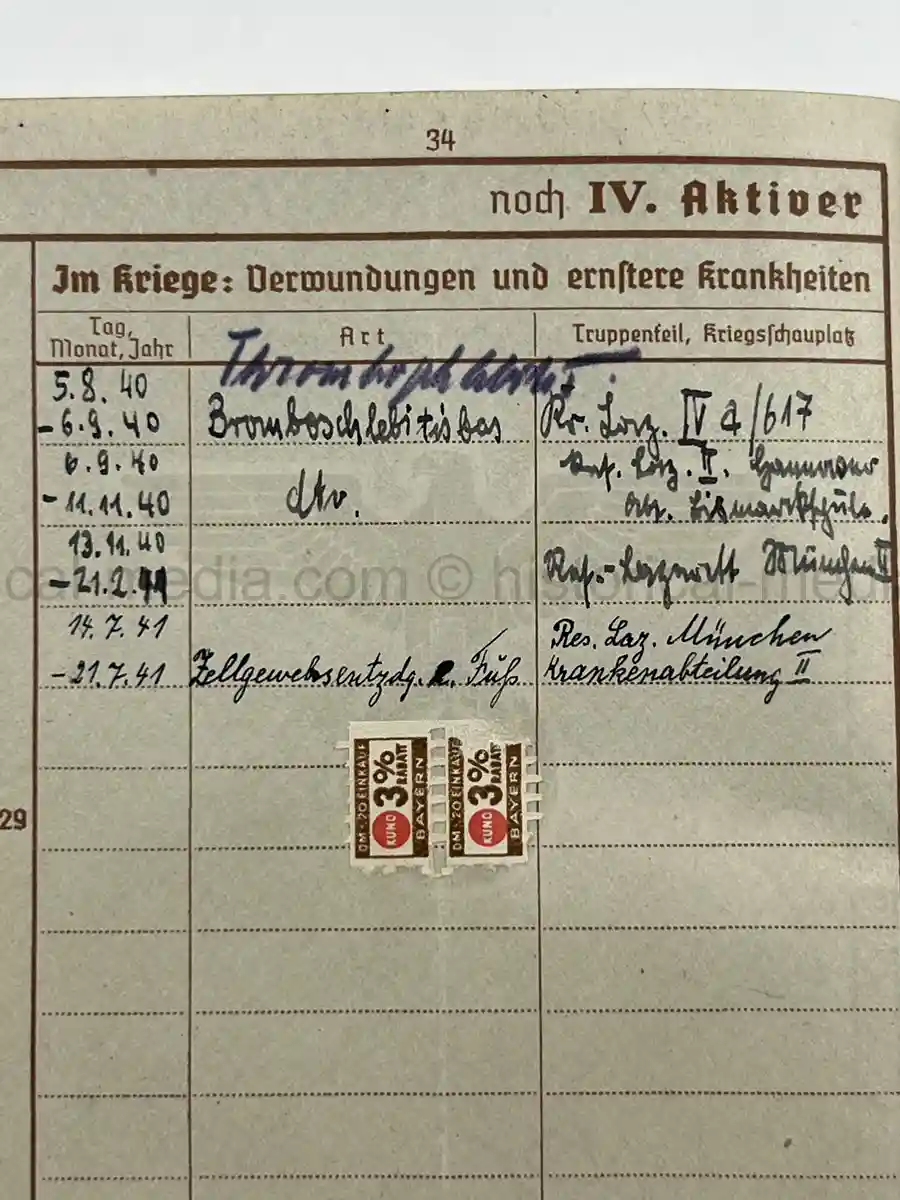 34
noch IV. Aktiver
Im Kriege: Verwundungen und ernstere Krankheiten
Tag,
Monat, Jahr
Art
Truppenteil, Kriegsschauplatz
5.8.40
-6.9.40 Bromboschlebitisbas Kr. Laz. IV a/617
6.9.40 Res. Laz. II. Hannover
-11.11.40 dto. Abt. Bismarkschule.
13.11.40
-21.2.41 Res.-Lazarett München II
14.7.41 Res. Laz. München
-21.7.41 Zellgewebsentzdg. Fuß Krankenabteilung II
DM -.20 EINKAUF
KUNO
3% RABATT
BAYERN
DM -.20 EINKAUF
KUNO
3% RABATT
BAYERN
29
media.com © historical-media